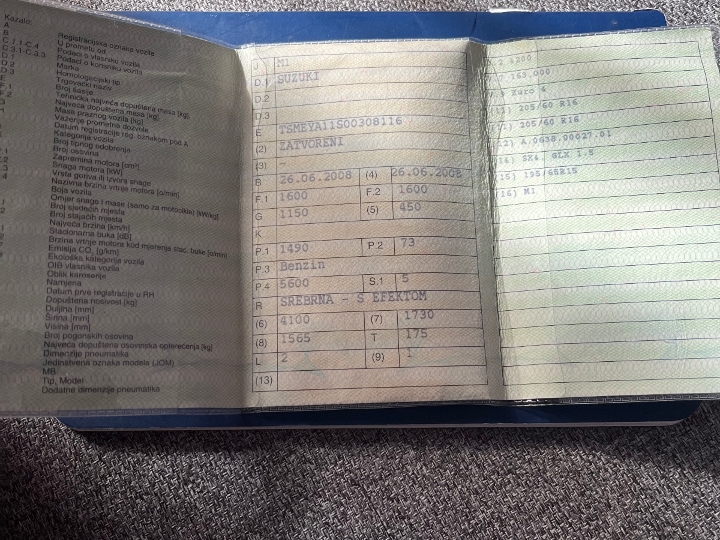 Kazalo:
A Registracijska oznaka vozila
B U prometu od
C.1.1-C.4 Podaci o vlasniku vozila
C.3.1-C.3.3 Podaci o korisniku vozila
D.1 Marka
D.2 Homologacijski tip
D.3 Trgovački naziv
E Broj šasije
F.1 Tehnička najveća dopuštena masa [kg]
F.2 Najveća dopuštena masa [kg]
Masa praznog vozila [kg]
Važenje prometne dozvole
Datum registracije reg. oznakom pod A
Kategorija vozila
Broj tipnog odobrenja
Broj osovina
Zapremina motora [cm³]
Snaga motora [kW]
Vrsta goriva ili izvora snage
Nazivna brzina vrtnje motora [o/min]
Boja vozila
Omjer snage i mase (samo za motocikle) [kW/kg]
Broj sjedećih mjesta
Broj stajaćih mjesta
Najveća brzina [km/h]
Stacionarna buka [dB]
Brzina vrtnje motora kod mjerenja stac. buke [o/min]
Emisija CO₂ [g/km]
Ekološka kategorija vozila
OIB vlasnika vozila
Oblik karoserije
Namjena
Datum prve registracije u RH
Dopuštena nosivost [kg]
Duljina [mm]
Širina [mm]
Visina [mm]
Broj pogonskih osovina
Najveća dopuštena osovinska opterećenja [kg]
Dimenzije pneumatika
Jedinstvena oznaka modela (JOM)
MB
Tip, Model
Dodatne dimenzije pneumatika
J M1
D.1 SUZUKI
D.2
D.3
E TSMEYA11S00308116
(2) ZATVORENI
(3) -
B 26.06.2008 (4) 26.06.2008
F.1 1600 F.2 1600
G 1150 (5) 450
K
P.1 1490 P.2 73
P.3 Benzin
P.4 5600 S.1 5
R SREBRNA - S EFEKTOM
(6) 4100 (7) 1730
(8) 1565 T 175
L 2 (9) 1
(13)
4200
163.000
Euro 4
205/60 R16
205/60 R16
A.0638.00027.01
SX4, GLX 1.5
(15) 195/65R15
(16) M1